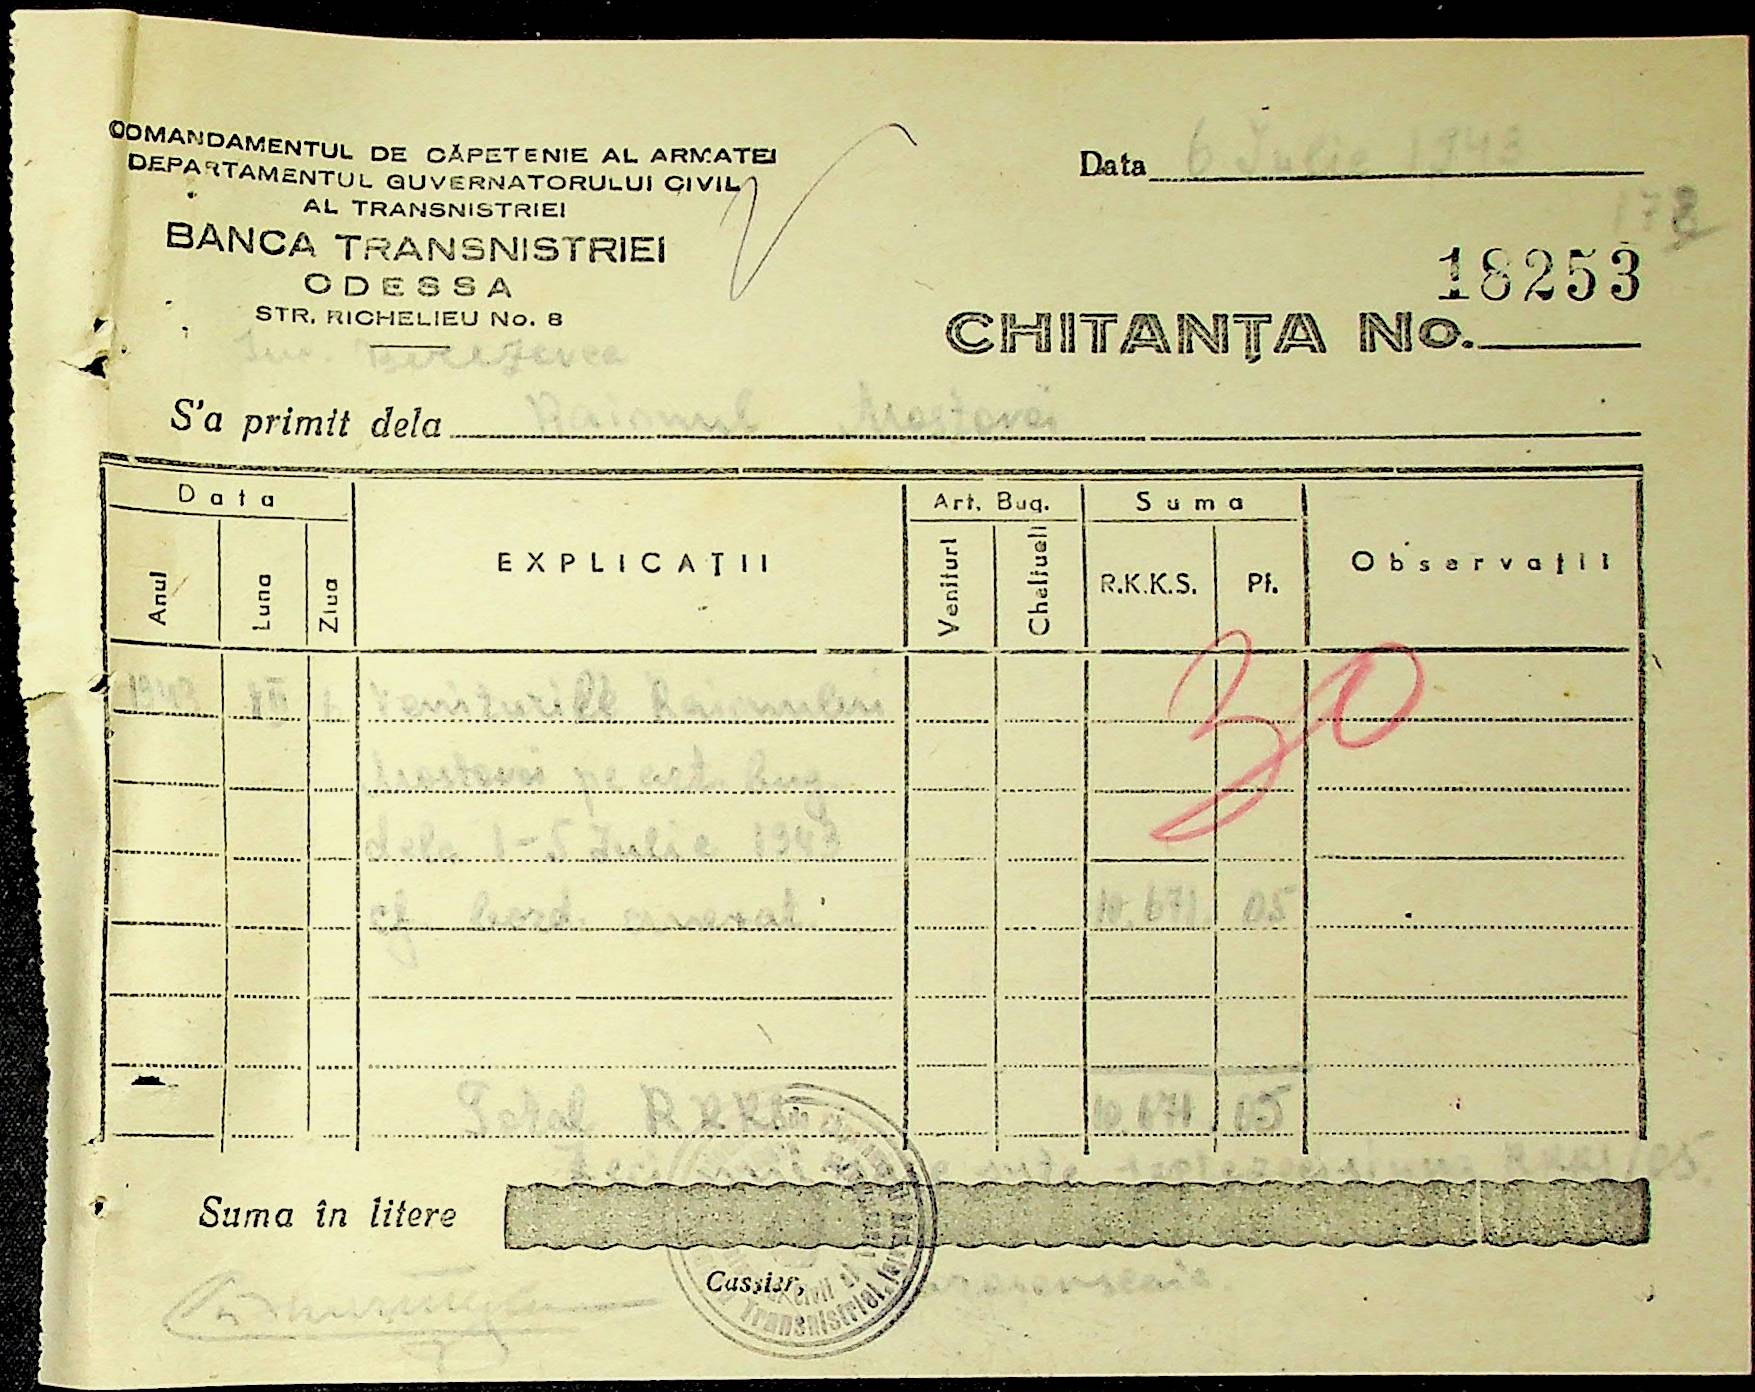 COMANDAMENTUL DE CĂPETENIE AL ARMATEI
DEPARTAMENTUL GUVERNATORULUI CIVIL
AL TRANSNISTRIEI
BANCA TRANSNISTRIEI
ODESSA
STR. RICHELIEU No. 8
Data 6 Iulie 1943
178
18253
CHITANȚA No.
Jud. Berezovca
S'a primit dela Raionul Mostovoi
Data
Anul
Luna
Ziua
EXPLICAȚII
Art. Bug.
Venituri
Cheltueli
Suma
R.K.K.S.
Pf.
Observații
30
1943 VII Veniturile Raionului
Mostovoi pe art. bug.
dela 1-5 Iulie 1943
cf. bord. anexat. 10.671. 05
Total RKKS 10.671. 05
Zeci mii șase sute RKKS/05.
Suma în litere
Cassier,
Civil al Transnistriei